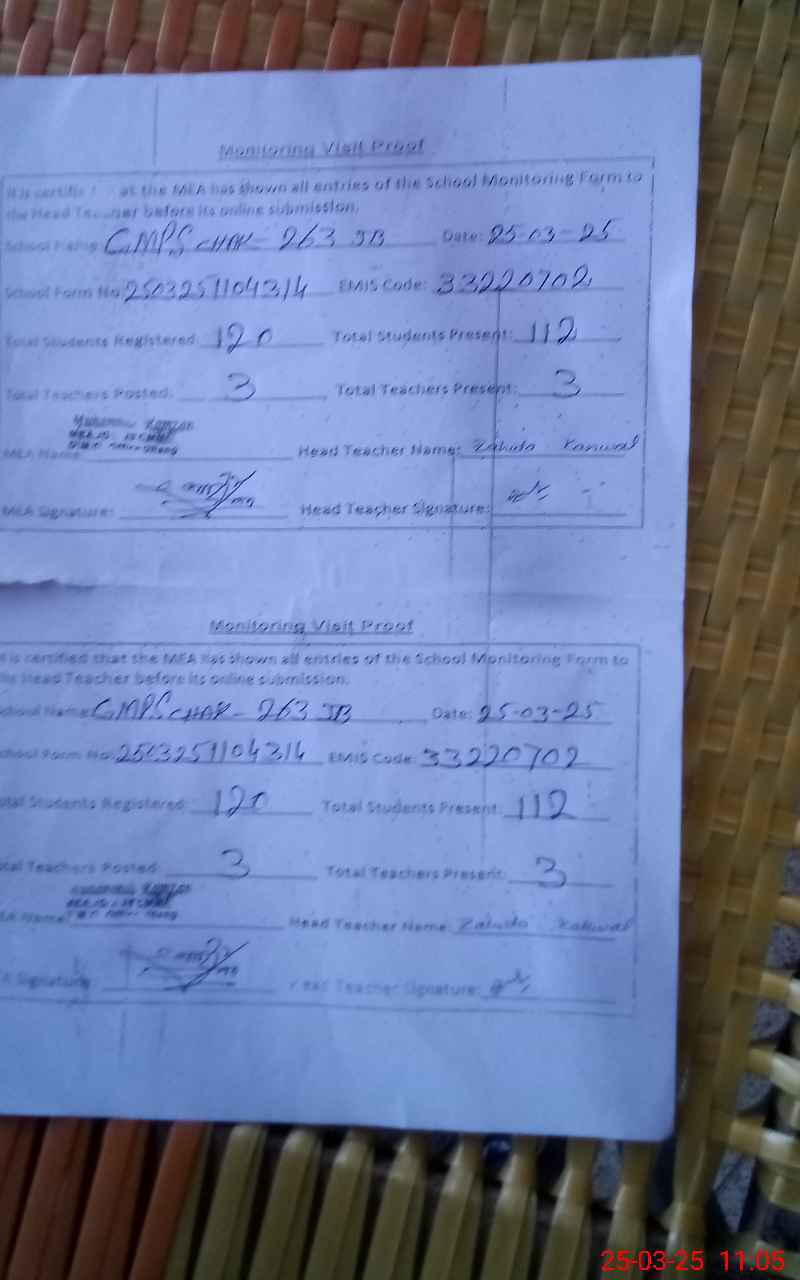 Monitoring Visit Proof
It is certified that the MEA has shown all entries of the School Monitoring Form to
the Head Teacher before its online submission.
School Name: GMPS CHAK - 263 JB Date: 25-03-25
School Form No: 2503251104314 EMIS Code: 33220702
Total Students Registered: 120 Total Students Present: 112
Total Teachers Posted: 3 Total Teachers Present: 3
MEA Name: Head Teacher Name: Zahida Kanwal
MEA Signature: Head Teacher Signature:
Monitoring Visit Proof
It is certified that the MEA has shown all entries of the School Monitoring Form to
the Head Teacher before its online submission.
School Name: GMPS CHAK - 263 JB Date: 25-03-25
School Form No: 2503251104314 EMIS Code: 33220702
Total Students Registered: 120 Total Students Present: 112
Total Teachers Posted: 3 Total Teachers Present: 3
MEA Name: Head Teacher Name: Zahida Kanwal
MEA Signature: Head Teacher Signature:
25-03-25 11.05